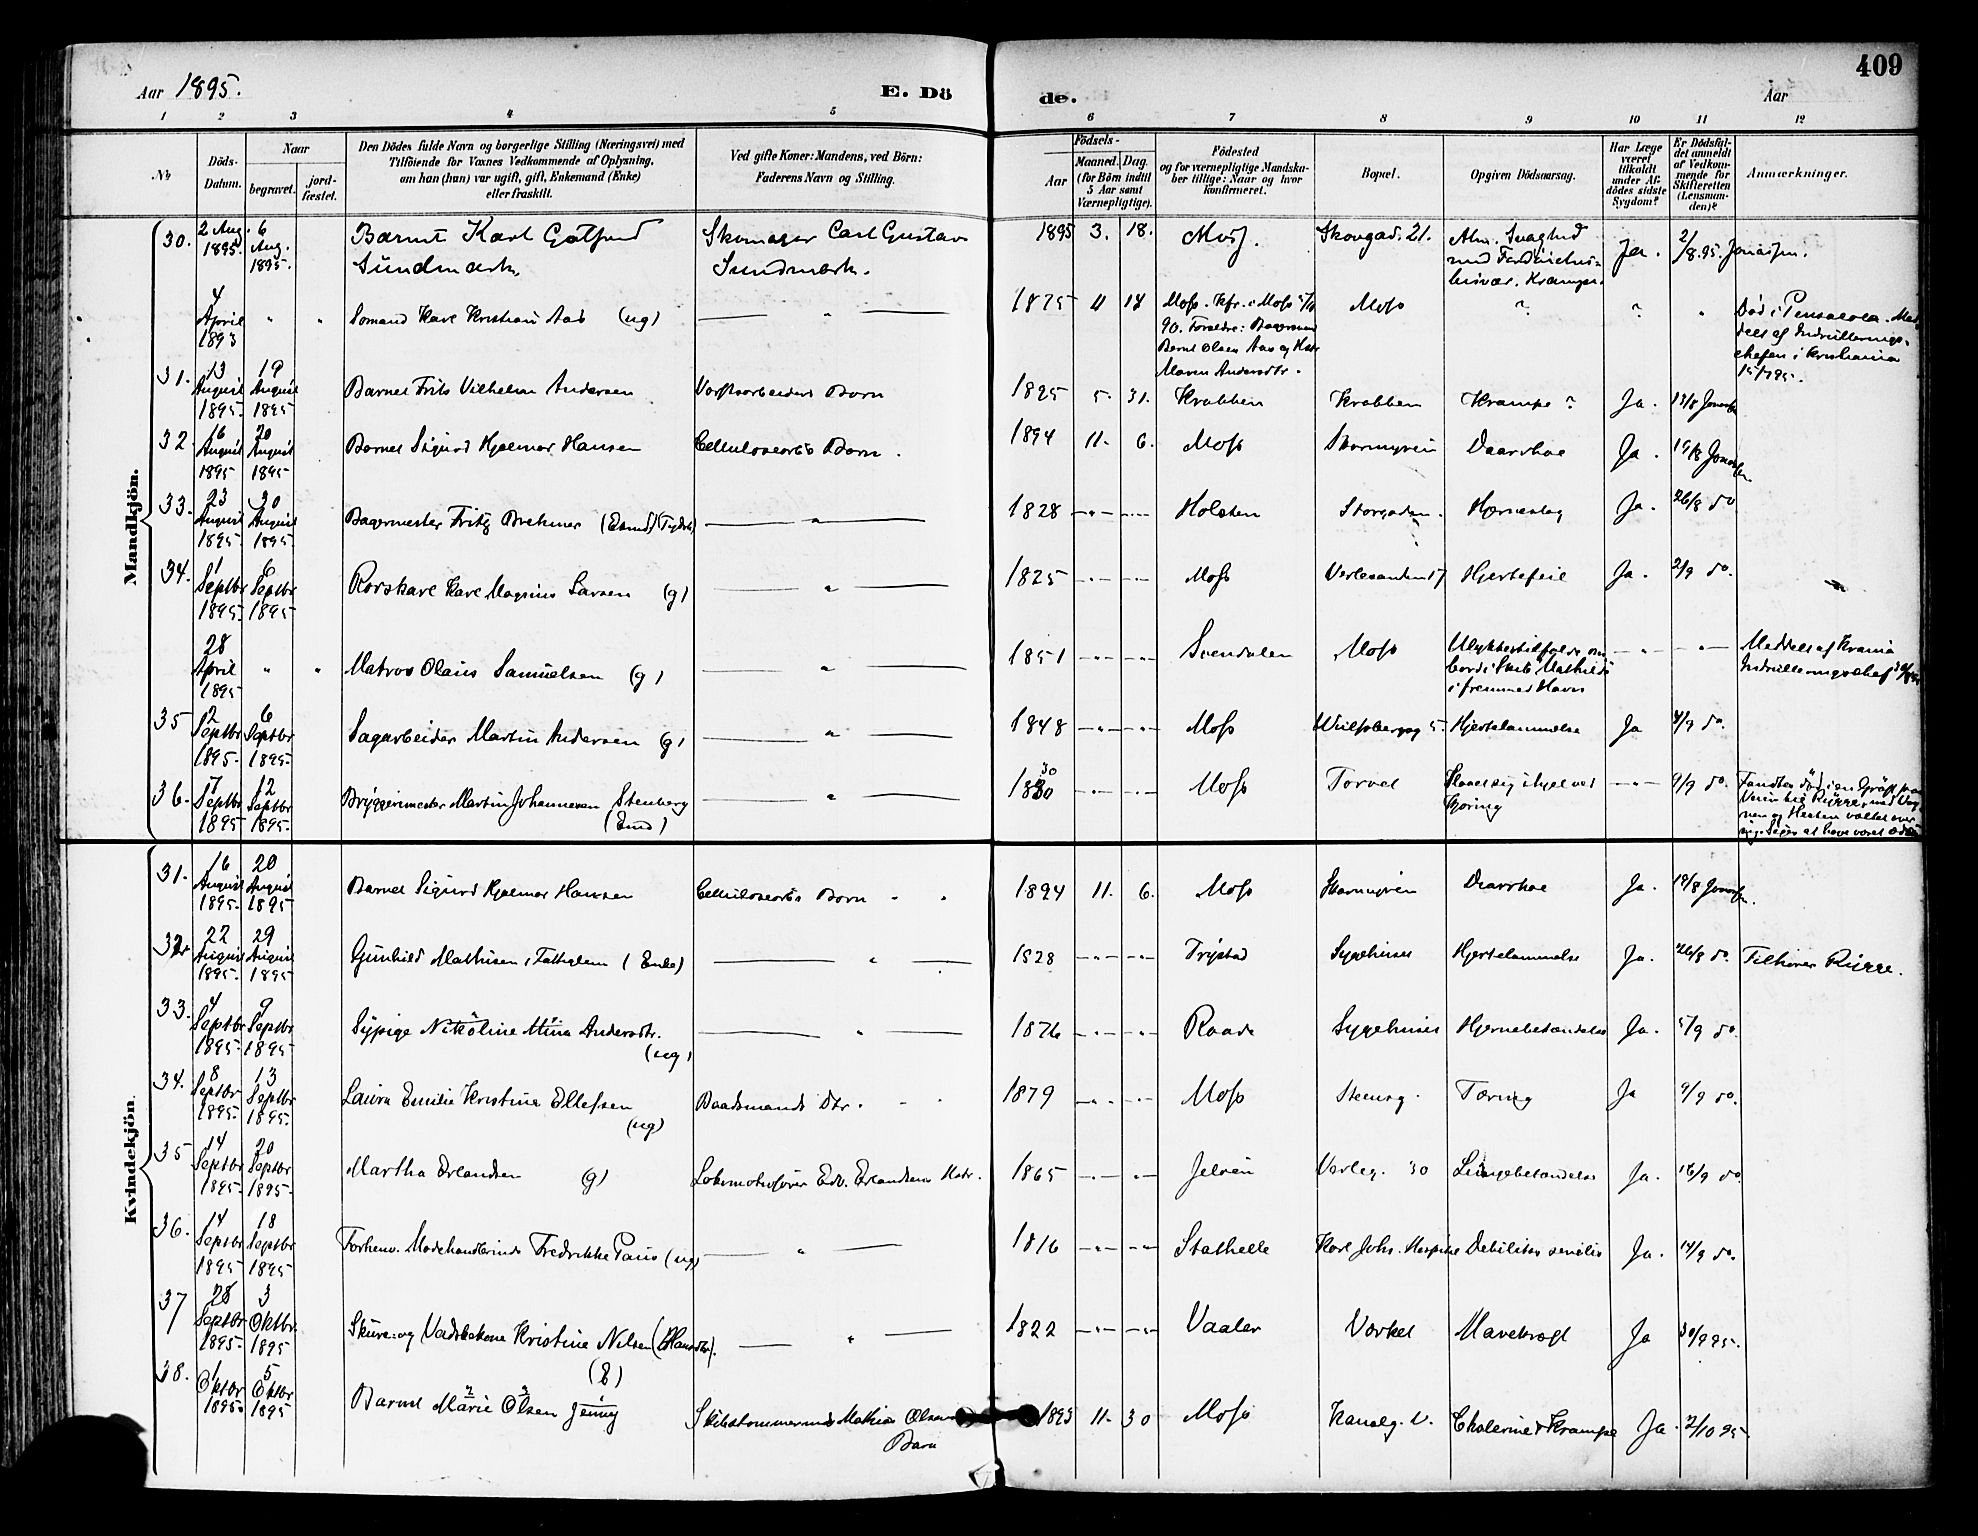 409
Aar 1895. E. Dö de. Aar
1 2 3 4 5 6 7 8 9 10 11 12
No
Döds-Datum.
Naar
begravet.
jord-fæstet.
Den Dödes fulde Navn og borgerlige Stilling (Næringsvei) med
Tilföiende for Voxnes Vedkommende af Oplysning,
om han (hun) var ugift, gift, Enkemand (Enke)
eller fraskilt.
Ved gifte Koner: Mandens, ved Börn:
Faderens Navn og Stilling.
Födsels-
Aar
Maaned. Dag.
(for Börn indtil
5 Aar samt
Værnepligtige).
Födested
og for værnepligtige Mandska-
ber tillige: Naar og hvor
konfirmeret.
Bopæl.
Opgiven Dödsaarsag.
Har Læge
været
tilkaldt
under Af-
dödes sidste
Sygdom?
Er Dödsfal-
det anmeldt
af Vedkom-
mende for
Skifteretten
(Lensman-
den)?
Anmærkninger.
Mandkjön.
30. 2 Aug. 1895. 6 Aug. 1895. Barnet Karl Gotfred Sundmark Skomager Carl Gustav Sundmark. 1895 3. 18. Moss. Skovgad. 21. Alm. Svaghed med Krampe. Ja. 2/8.95. Jonassen.
4 April 1893 " " Sömand Karl Kristian Aas (ug) " 1875 11 18 Moss. Kfr. i Moss 90. Foreldre: Bernt Olsen Aas og Maren Andersdtr. Moss ? ? " Död i Pensacola. Meddelt af Indrulleringschefen i Kristiania 15/7 95.
31. 13 August 1895 19 August 1895 Barnet Frits Vilhelm Andersen Værftsarbeiders Barn 1895 5. 31. Krabben Krabben Krampe? Ja. 13/8 Jonassen
32. 16 August 1895 20 August 1895 Barnet Sigurd Hjalmar Hansen Cellulosearb's Barn. 1894 11. 6. Moss Skarmyren Diarrhoe Ja. 19/8 Jonassen
33. 23 August 1895. 30 August 1895. Bagermester Fritz Brehmer (Enkd) (Tydsk) " 1828 " " Holsten Storgaden. Hjerneslag Ja. 26/8 do
34. 1 Septbr 1895. 6 Septbr 1895 Rorskarl Karl Magnus Larsen (g) " 1825 " " Moss Verlesanden 17 Hjertefeil Ja. 2/9 do.
28 April 1895 " " Matros Olaus Samuelsen (g) " 1851 " " Svendalen Moss Ulykkestilfælde ombord i Skib Mathilde i fremmed Havn " " Meddelt af Krania Indrulleringschef
35 2 Septbr 1895. 6 Septbr 1895. Sagarbeider Martin Andersen (g) " 1848 " " Moss Wulfsbergsg 5. Hjertelammelse Ja 4/9 do.
36. 7 Septbr 1895 12 Septbr 1895. Bryggerimester Martin Johannesen Stenberg (Emd) " 1830 30 " " Moss Torvet Slaaet sig ihjel ved Kjöring " 9/9 do. Fundtes död i en Gröft Rygge, med Vognen og Hesten væltet over sig. Siges at have været
Kvindekjön.
31. 16 August 1895. 20 August 1895 Barnet Sigurd Hjalmar Hansen Cellulosearb's Barn " " 1894 11. 6. Moss Skarmyren Diarrhoe Ja. 19/8 Jonassen.
32. 22 August 1895. 29 August 1895 Gunhild Mathisen, (Enke) " 1828 " " Trygstad Sygehuset Hjertelammelse Ja. 26/8 do. Tilhører Rygge.
33. 4 Septbr 1895. 9 Septbr 1895 Sypige Nikoline Mina Andersdtr. (ug) " 1876 " " Raade Sygehuset Hjernebetændelse Ja. 5/9 do.
34. 8 Septbr 1895. 13 Septbr 1895. Laura Emilie Kristine Ellefsen (ug) Baadsmands Dtr. " " 1879 " " Moss Steensg. Tæring Ja 9/9 do.
35 14 Septbr 1895 20 Septbr 1895. Martha Erlandsen (g) Lokomotivfører Edv. Erlandsens Hstr. 1865 " " Jelöen Verleg. 30 Lungebetændelse Ja. 16/9 do.
36. 14 Septbr 1895 18 Septbr 1895 Forhenv. Modehandlerinde Fredrikke Paus (ug) " 1816 " " Stathelle Karl Johs. Hospits Debilitas senilis Ja. 14/9 do.
37 28 Septbr 1895. 3 Oktbr. 1895 Skure- og Vadskekone Kristine Nilsen (Hansdtr). (E) " 1822 " " Vaaler Værket Mavekræft Ja 30/9 95.
38. 1 Oktbr 1895. 5 Oktbr 1895 Barnet Marie Olsen Jenny Skibstømmermand Mathias Olsens Barn 1893 11. 30 Moss Kanalg. V. Cholerine & Krampe Ja. 2/10 95.